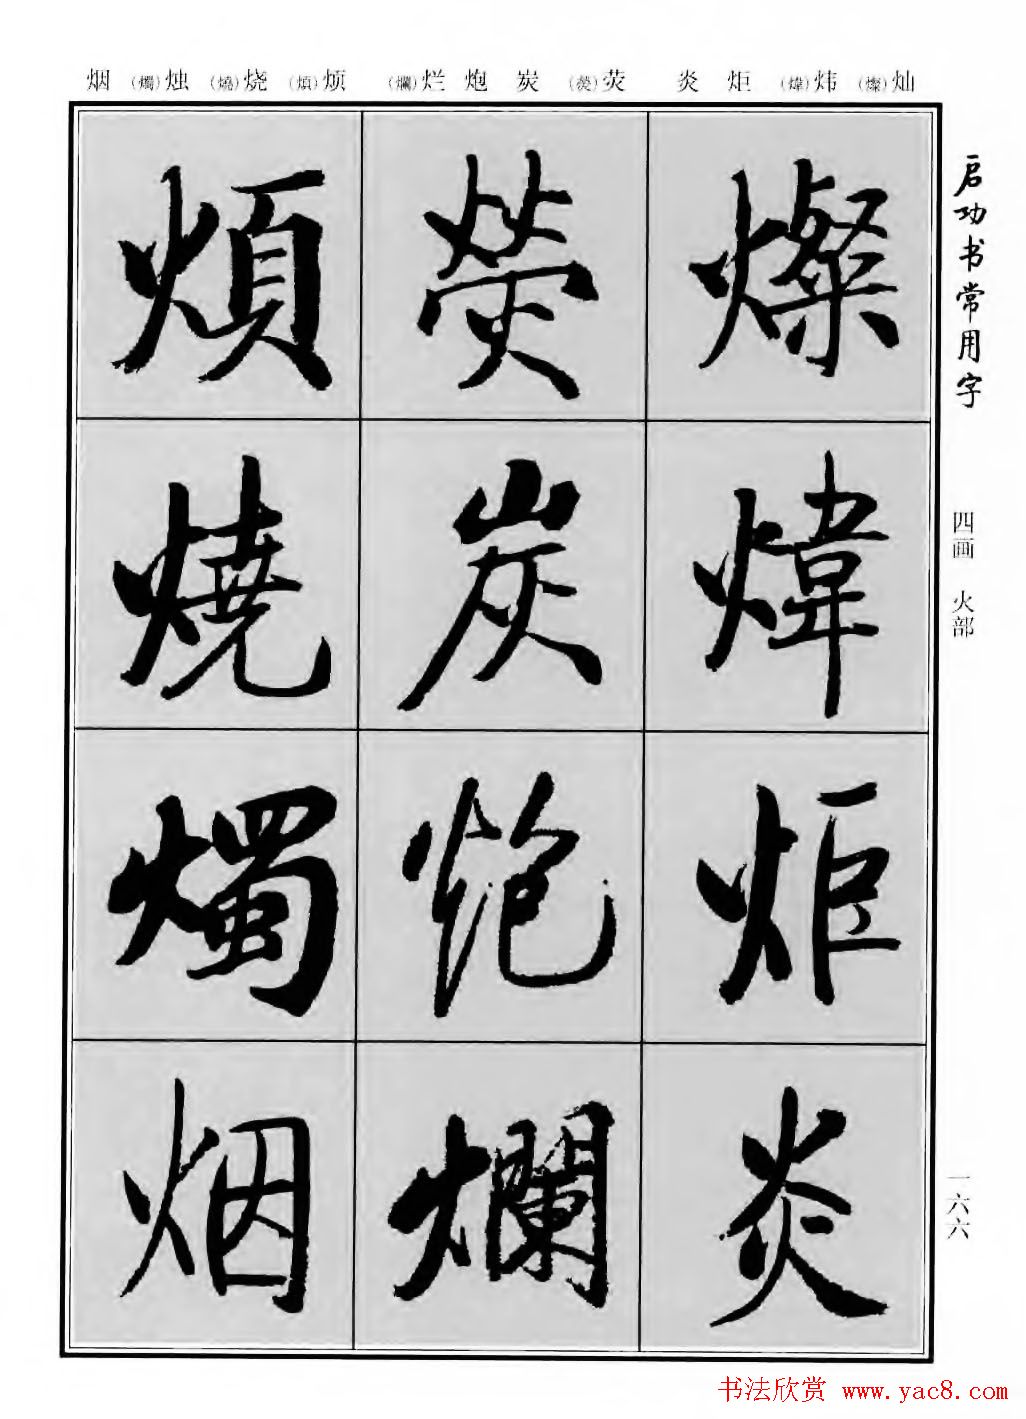 烟 (燭)烛 (燒)烧 (煩)烦 (爛)烂 炮 炭 (熒)荧 炎 炬 (煒)炜 (燦)灿
启功书常用字
四画 火部
一六六
燦
煒
炬
炎
熒
炭
炮
爛
煩
燒
燭
烟
书法欣赏 www.yac8.com